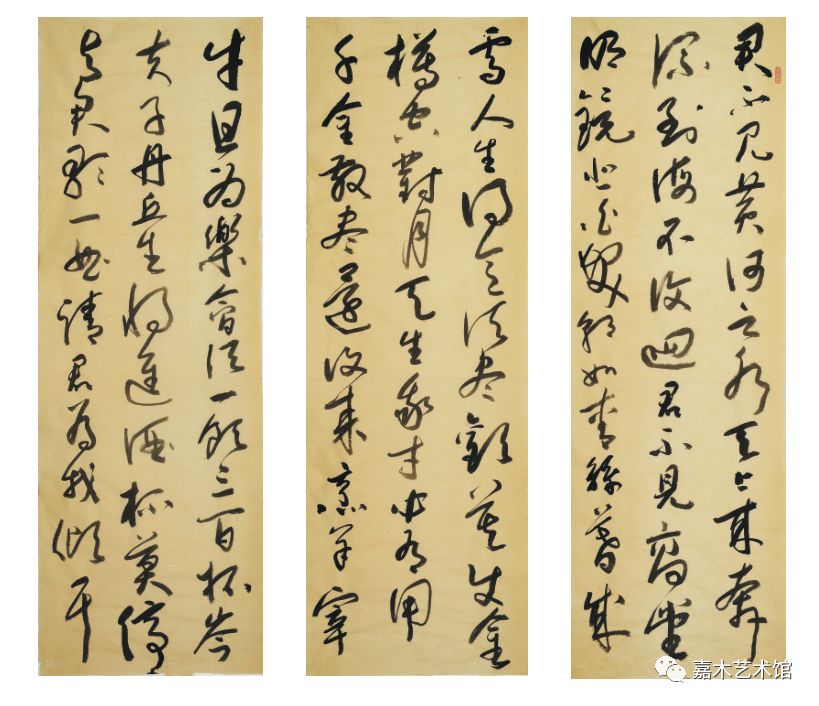 君不见黄河之水天上来奔
流到海不復迴君不見高堂
明鏡悲白髮朝如青絲暮成
雪人生得意须尽歡莫使金
樽空對月天生我才必有用
千金散尽還復来烹羊宰
牛且为樂會须一飲三百杯岑
夫子丹丘生将進酒杯莫停
与君歌一曲請君为我傾耳
嘉木艺术馆